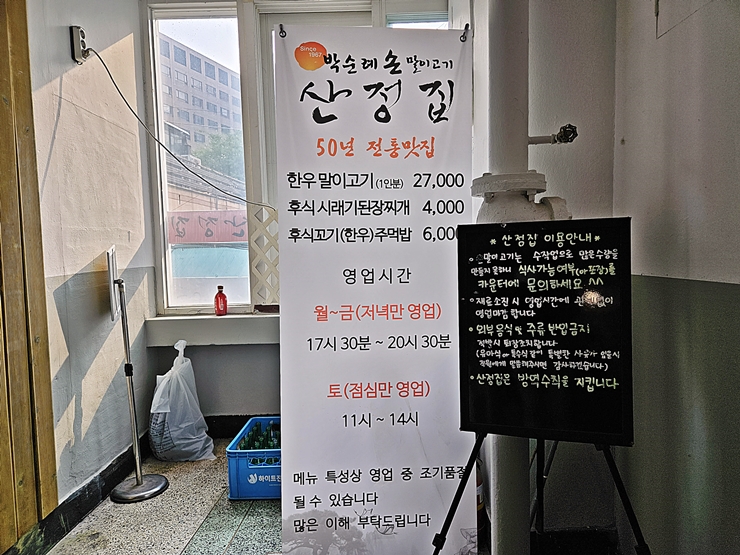 Since
1967
박순례 손 말이고기
산정집
50년 전통맛집
한우 말이고기 (1인분) 27,000
후식 시래기된장찌개 4,000
후식꼬기(한우)주먹밥 6,000
영업시간
월~금(저녁만 영업)
17시 30분 ~ 20시 30분
토(점심만 영업)
11시 ~ 14시
메뉴 특성상 영업 중 조기품절
될 수 있습니다
많은 이해 부탁드립니다
* 산정집 이용안내 *
손말이고기는 수작업으로 많은수량을
만들지 못하니 식사가능여부(or포장)를
카운터에 문의하세요 ^^
재료소진 시 영업시간에 관계없이
영업마감 합니다
외부음식 및 주류 반입금지
적발시 퇴장조치합니다
(유아식 or 특수식 같이 특별한 사유가 있을시
직원에게 말씀해주시면 감사하겠습니다)
산정집은 방역수칙을 지킵니다
하이트진